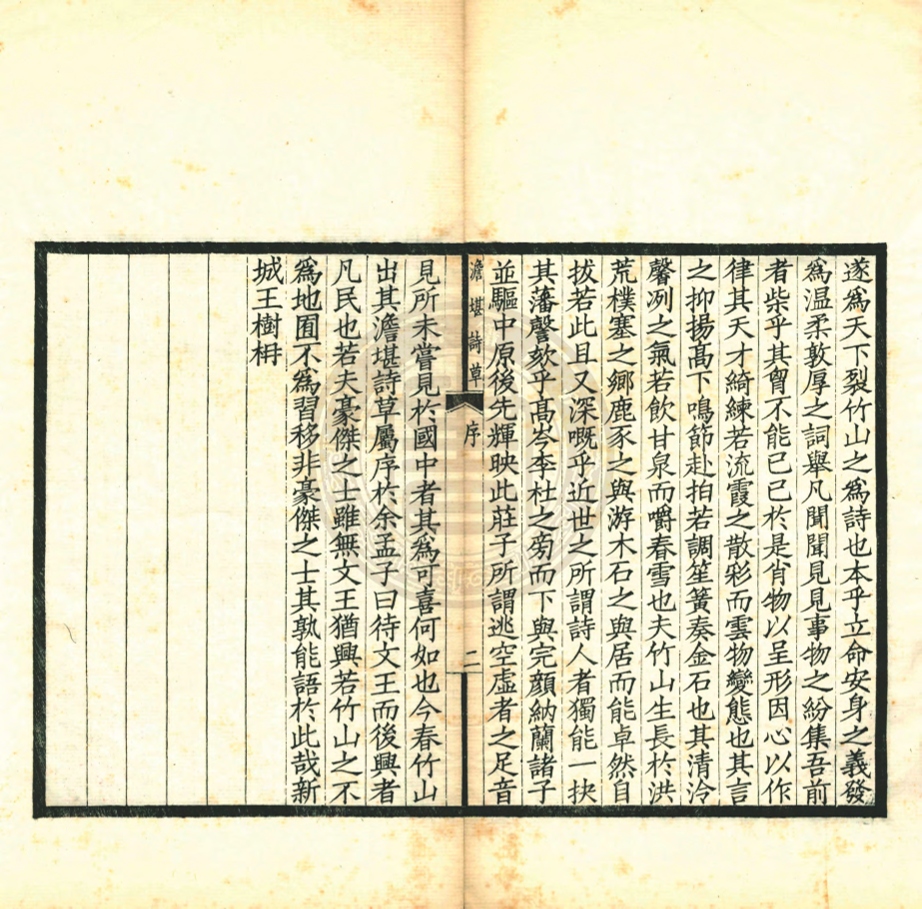 遂爲天下裂竹山之爲詩也本乎立命安身之義發
爲温柔敦厚之詞舉凡聞聞見見事物之紛集吾前
者柴乎其胷不能已已於是肖物以呈形因心以作
律其天才綺練若流霞之散彩而雲物變態也其言
之抑揚髙下鳴節赴拍若調笙簧奏金石也其清泠
馨冽之氣若飲甘泉而嚼春雪也夫竹山生長於洪
荒樸塞之鄉鹿豕之與游木石之與居而能卓然自
拔若此且又深嘅乎近世之所謂詩人者獨能一抉
其藩謦欬乎髙岑李杜之旁而下與完顔納蘭諸子
並驅中原後先輝映此莊子所謂逃空虛者之足音
澹堪詩草
序
二
見所未嘗見於國中者其爲可喜何如也今春竹山
出其澹堪詩草屬序於余孟子曰待文王而後興者
凡民也若夫豪傑之士雖無文王猶興若竹山之不
爲地囿不爲習移非豪傑之士其孰能語於此哉新
城王樹枏